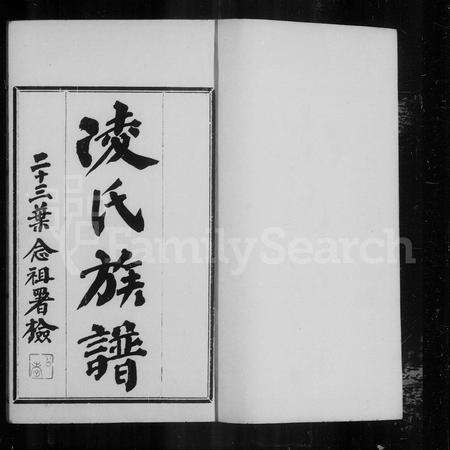 凌氏族譜
二十三葉念祖署檢
FamilySearch